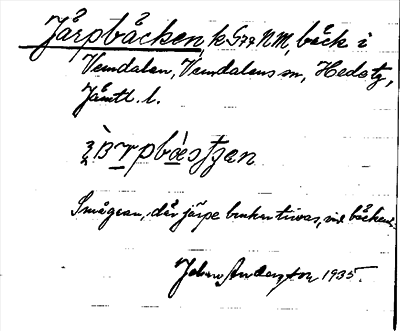 Järpbäcken, k G77 NM, bäck i
Vemdalen, Vemdalens sn, Hede tg,
Jämtl. l.
Smågran, där järpe bruker trivas, vid bäcken.
Johan Anderzon 1935.